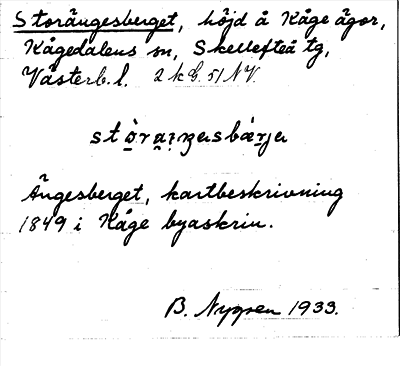 Storängesberget, höjd å Kåge ägor,
Kågedalens sn, Skellefteå tg,
Västerb. l. 2 k b. 51 NV.
Ängesberget, kartbeskrivning
1849 i Kåge byaskrin.
B. Nygren 1933.